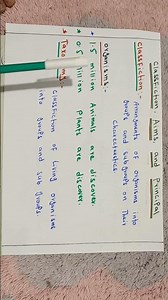 Classfiction Aims and Principal
Classfiction:- Arrangments of organisms into
groups and sub groups on Their
Characteristics.
organisms.
* 1.5 million Animals are discover.
* 0.5 million plants are discover.
*
Classfiction of Living organisms
into groups and sub groups.